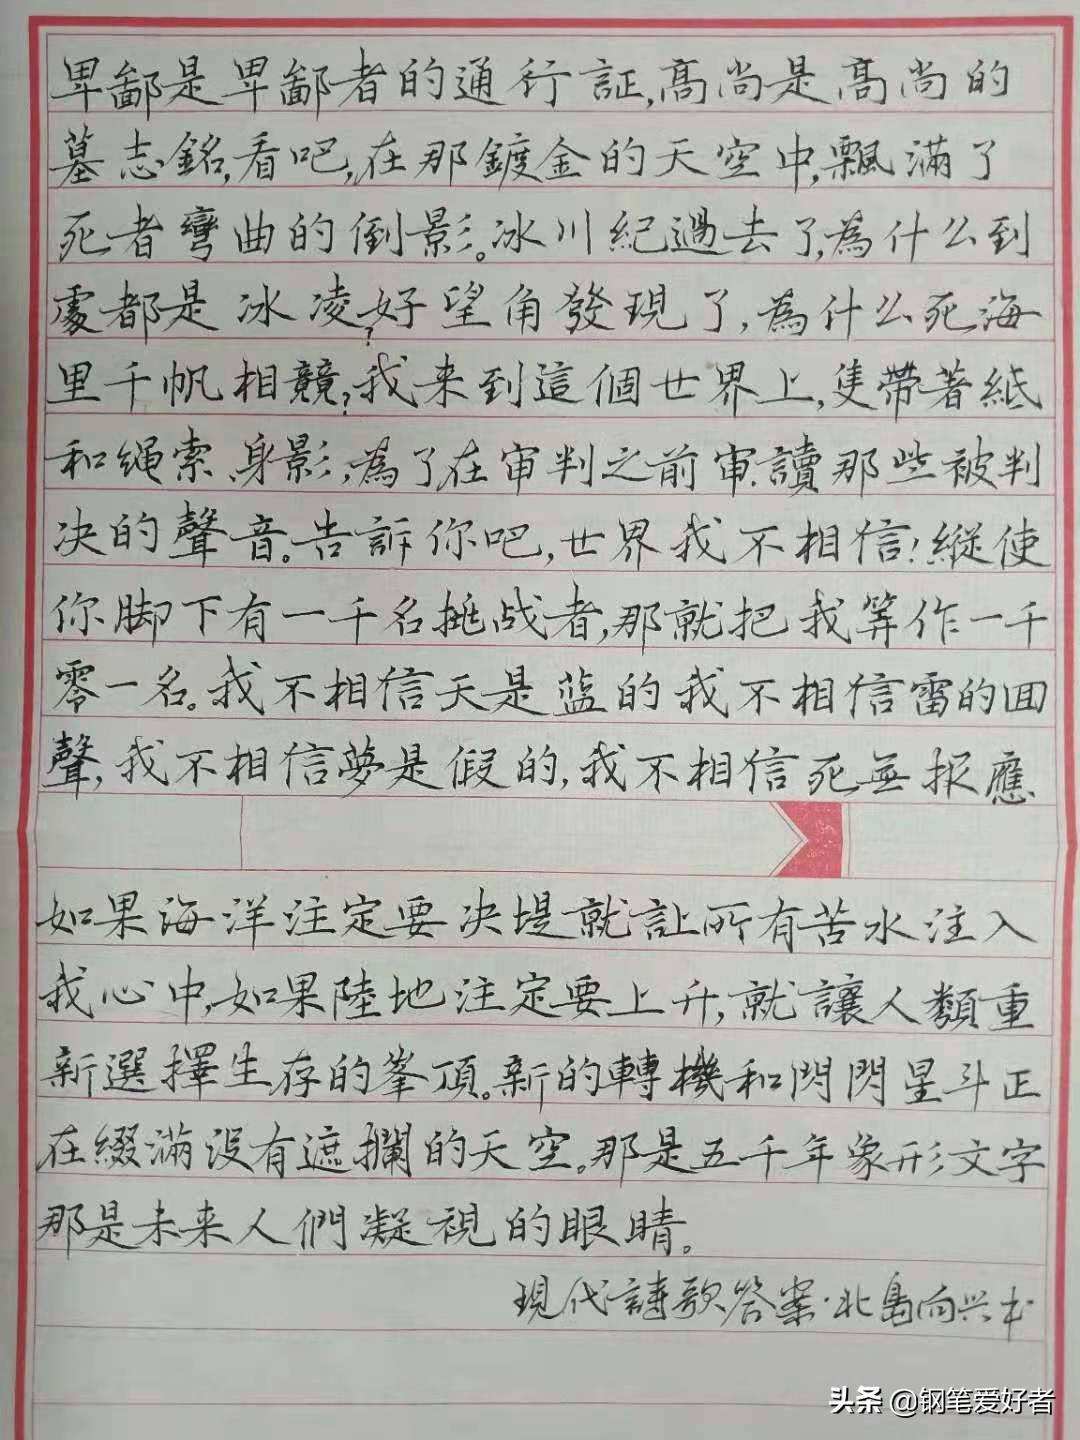 卑鄙是卑鄙者的通行証,高尚是高尚的
墓志銘,看吧,在那鍍金的天空中,飄滿了
死者彎曲的倒影。冰川紀過去了,為什么到
處都是冰凌?好望角發現了,為什么死海
里千帆相競?我来到這個世界上,隻帶著紙
和绳索身影,為了在审判之前审讀那些被判
决的聲音。告訴你吧,世界我不相信!縱使
你脚下有一千名挑战者,那就把我算作一千
零一名。我不相信天是蓝的我不相信雷的回
聲,我不相信夢是假的,我不相信死無报應
如果海洋注定要决堤就让所有苦水注入
我心中,如果陸地注定要上升,就讓人類重
新選擇生存的峯顶。新的轉機和閃閃星斗正
在綴滿没有遮攔的天空。那是五千年象形文字
那是未来人們凝視的眼睛。
現代詩歌答案·北島向兴书
头条 @钢笔爱好者